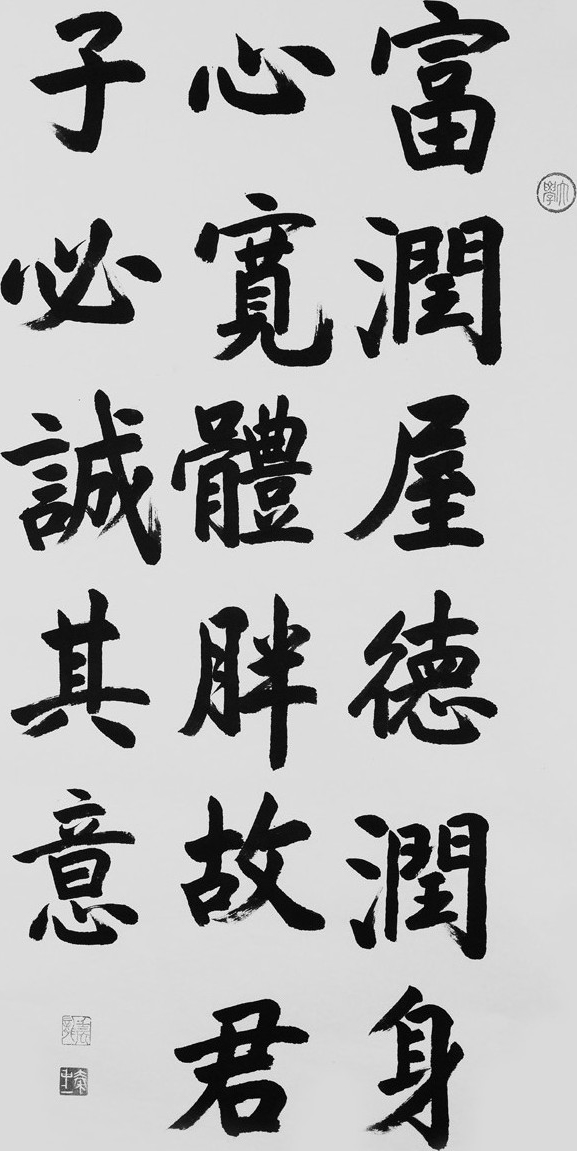 富潤屋德潤身
心寬體胖故君
子必誠其意
大學